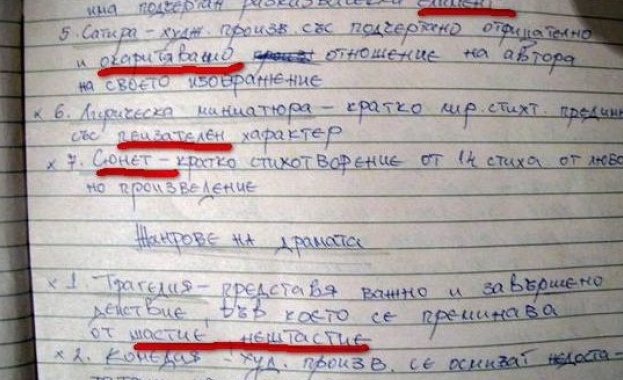 има подчертан разказвачески елемент
5. Сатира - худж. произв. със подчертано отрицателно
и окаритавашо отношение на автора
на своето изображение
х 6. Лирическа миниатюра - кратко лир. стихт. предимн
със пеизателен характер
х 7. Сюнет - кратко стихотворение от 14 стиха от любо
но произведение
Жанрове на драмата
х 1. Трагедия - представя важно и завършено
действие, във което се преминава
от шастие нештастие
х 2. Комедия - худ. произв. се осмиват недоста-